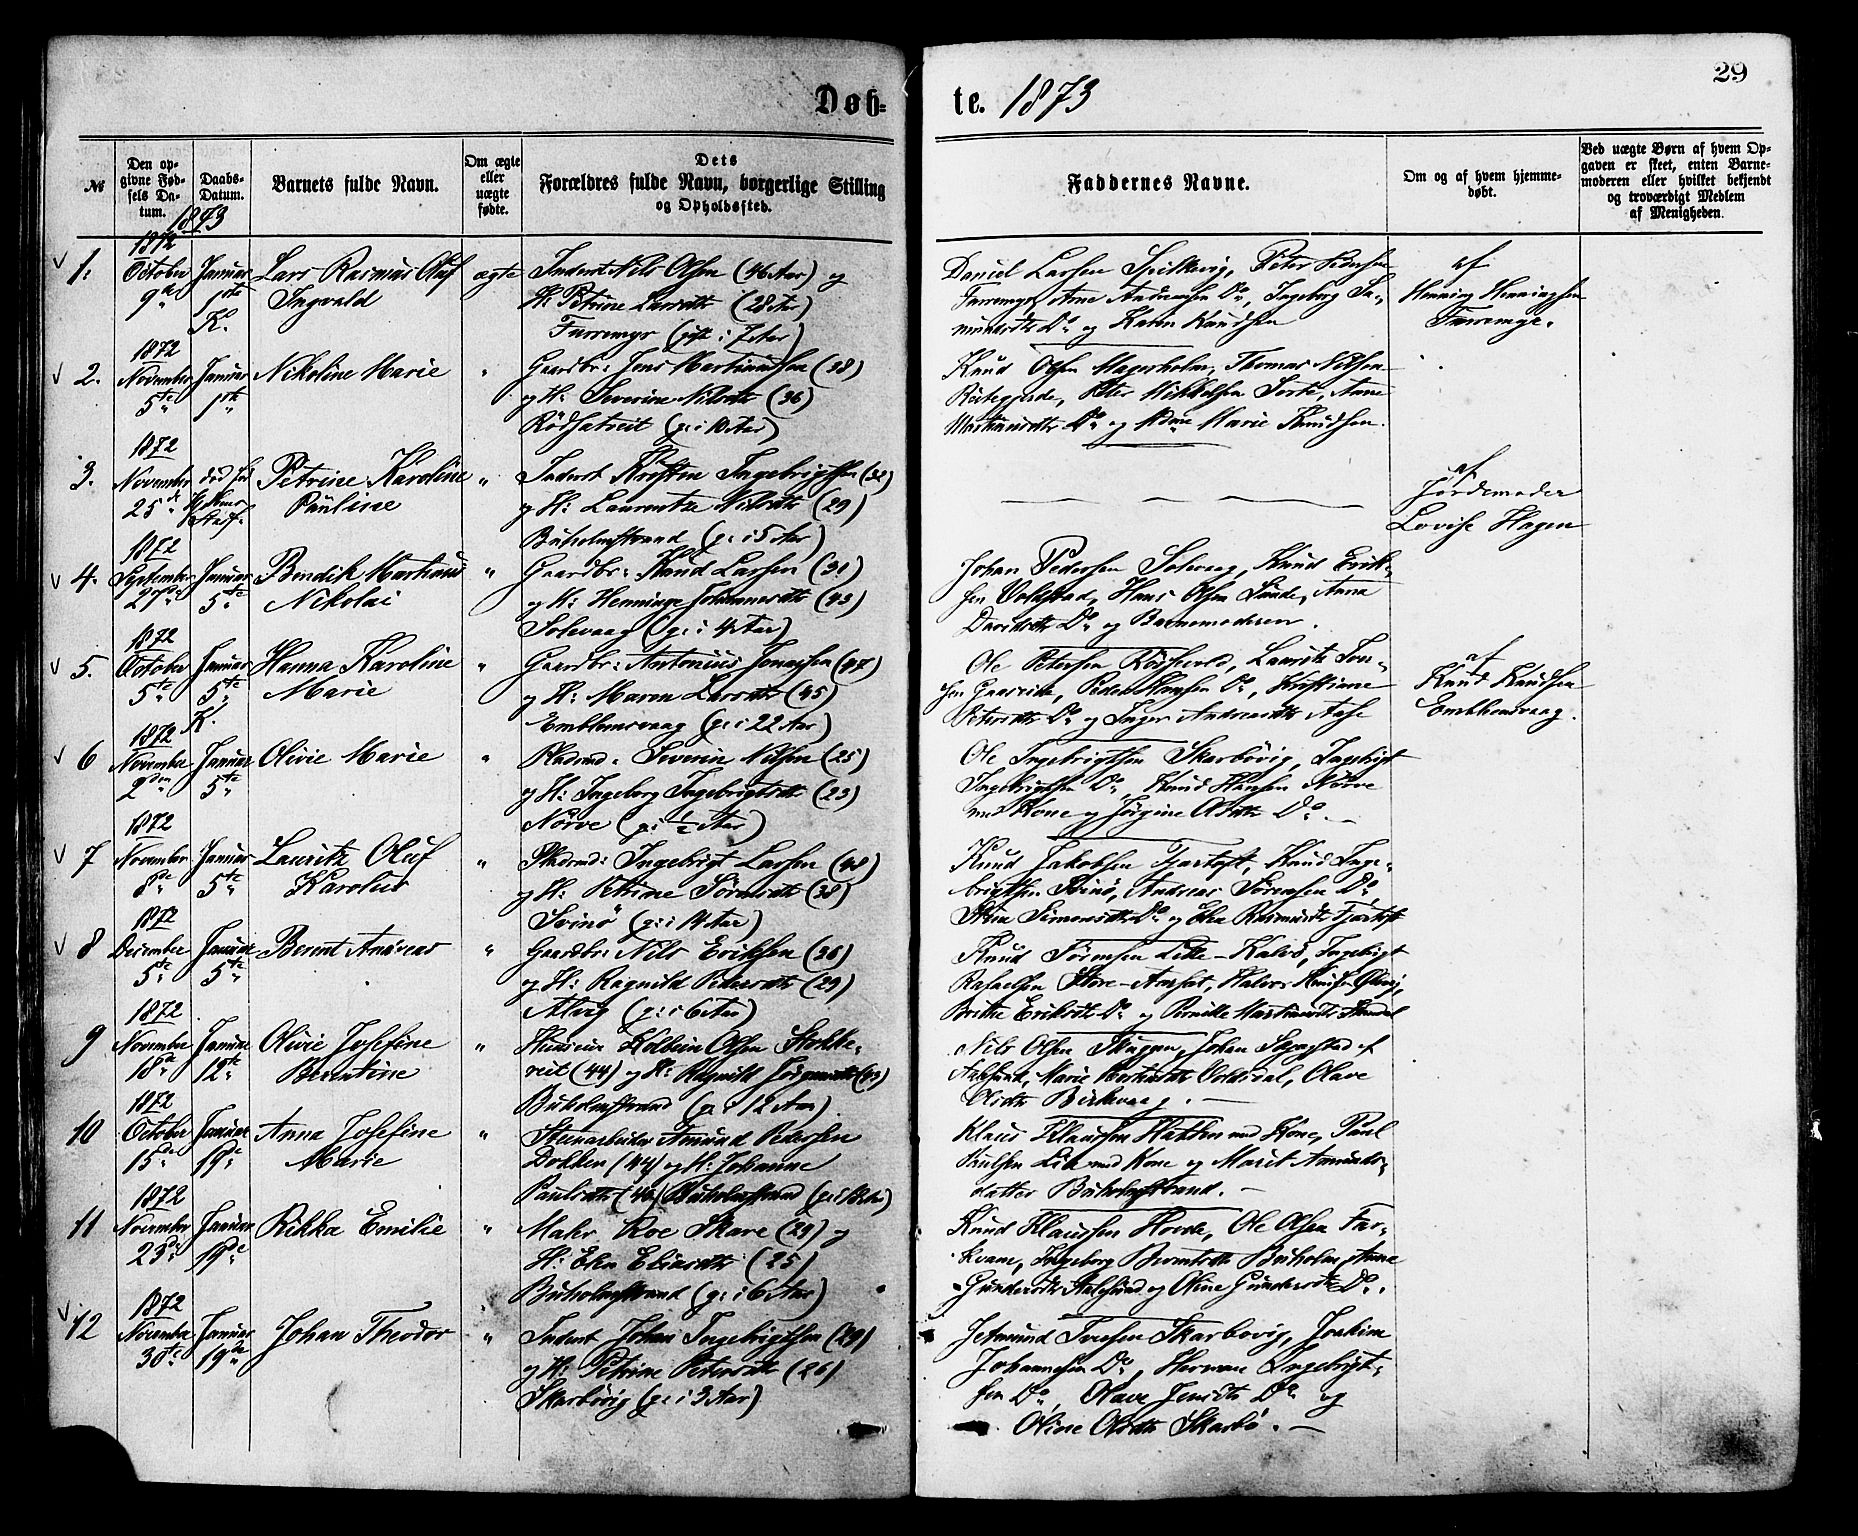 Døb-
te. 1873
29
№
Den opgivne Fødsels Datum.
Daabs-Datum.
Barnets fulde Navn.
Om ægte eller uægte fødte.
Dets Forældres fulde Navn, borgerlige Stilling og Opholdssted.
Faddernes Navne.
Om og af hvem hjemmedøbt.
Ved uægte Børn af hvem Opgaven er skeet, enten Barnemoderen eller hvilket bekjendt og troværdigt Medlem af Menigheden.
1873
1. 1872 October 9de Januar 1ste K.
Lars Rasmus Oluf
Ingvald
ægte
Inderst Nils Olsen (46 Aar) og
H: Petrine Larsdtr (28 Aar)
Furremyr (gift i 7 Aar)
Daniel Larsen Spilkevig, Peter Pedersen
Furremyr, Arne Andersen Do, Ingeborg
Do og Karen Knudsen
af
Henning Henningsen
Furremyr.
2. 1872 November 5te Januar 1ste
Nikoline Marie
"
Gaardbr: Jens Martinussen (38)
og H: Severine Nilsdtr (36)
Rödsætreit (g: i 10 Aar)
Knud Olsen Magerholm, Thomas Nilsen
Peter Mikkelsen Anne
Do og Marie Knudsen.
3. 1872 November 25de död
Petrine Karoline
Pauline
"
Inderst Kristen Ingebrigtsen
og H: Laurentze Nilsdtr (29)
Buholmstrand (g: i 5 Aar)
af
Jordemoder
Lovise Hagen
4. 1872 September Januar 5te
Bendik Martinus
Nikolai
"
Gaardbr: Knud Larsen (31)
og H: Henninge Johannesdtr (43)
Solevaag (g: i 4 Aar)
Johan Pedersen Solevaag, Knud Erik-
sen Voldstad, Hans Olsen Lunde, Anna
Davidsdtr Do og Barnemoderen.
5. 1872 October 5te Januar 5te K.
Hanna Karoline
Marie
"
Gaardbr: Antonius Jonassen (47)
og H: Maren Larsdtr (45)
Emblemsvaag (g: i 22 Aar)
Ole Petersen Lauritz
Gaaseide, Peder Hansen Do, Kristiane
Petersdtr Do og Inger Andreasdtr Aase
af
Knud Knudsen
Emblemsvaag.
6 1872 November 2den Januar 5te
Olivie Marie
"
Pladsmd: Severin Nilsen (25)
og H: Ingeborg Ingebrigtsdtr (23)
Nörve (g: i ½ Aar)
Ole Ingebrigtsen Skarbövig, Ingebrigt
Ingebrigtsen Do, Knud Hansen Nörve
med Kone og Jörgine Olsdtr Do. —
7 1872 November 8de Januar 5te
Lauritz Oluf
Karolus
"
Pladsmd: Ingebrigt Larsen (48)
og H: Petrine Sörensdtr (38)
Svinö (g: i 14 Aar)
Knud Jakobsen Tjørtoft, Knud Inge-
brigtsen Svinö, Andreas Sörensen Do,
Stina Simonsdtr Do og Elen Rasmusdtr Tjørtoft
8 1872 December 5te Januar 5te
Bernt Andreas
"
Gaardbr: Nils Eriksen (36)
og H: Ragnild Pedersdtr (29)
Alvig (g: i 6 Aar)
Knud Sörensen Lille-Kalvö, Ingebrigt
Rafaelsen Store-Aarset, Halvor Knudsen
Brithe Eriksdtr Do og Pernille Martinusdtr
9 1872 November 18de Januar 12te
Olivie Josefine
Berntine
"
Kolbein Olsen Stokke-
reit (44) og H: Ragnild Jörgensdtr (43)
Buholmstrand (g: i 12 Aar)
Nils Olsen Skuggen, Johan af
Aalesund, Marie Voldsdal, Olave
Olsdtr Birkevaag. —
10 1872 October 15de Januar 19de
Anna Josefine
Marie
"
Stenarbeider Amund Pedersen
Dokken (44) og H: Johanne
Paulsdtr (40) Buholmstrand
Klaus Klaussen Hatlen med Kone, Paul
Paulsen Lid med Kone og Marit Amunds-
datter Buholmstrand. —
11 1872 November 23de Januar 19de
Rikka Emilie
"
Maler Roe Skare (29) og
H: Elen Eliasdtr (25)
Buholmstrand (g: i 6 Aar)
Knud Klaussen Ole Olsen Far-
kvame, Ingeborg Berntsdtr Buholm, Anne
Gundersdtr Aalesund og Oline Gundersdtr Do.
12 1872 November 30te Januar 19de
Johan Theodor
"
Inderst Johan Ingebrigtsen (29)
og H: Petrine Petersdtr (26)
Skarbövig (g: i 3 Aar)
Jetmund Iversen Skarbövig, Joakim
Johannesen Do, Herman Ingebrigt-
sen Do, Olave Jensdtr Do og
Oline Olsdtr Skarbö. —